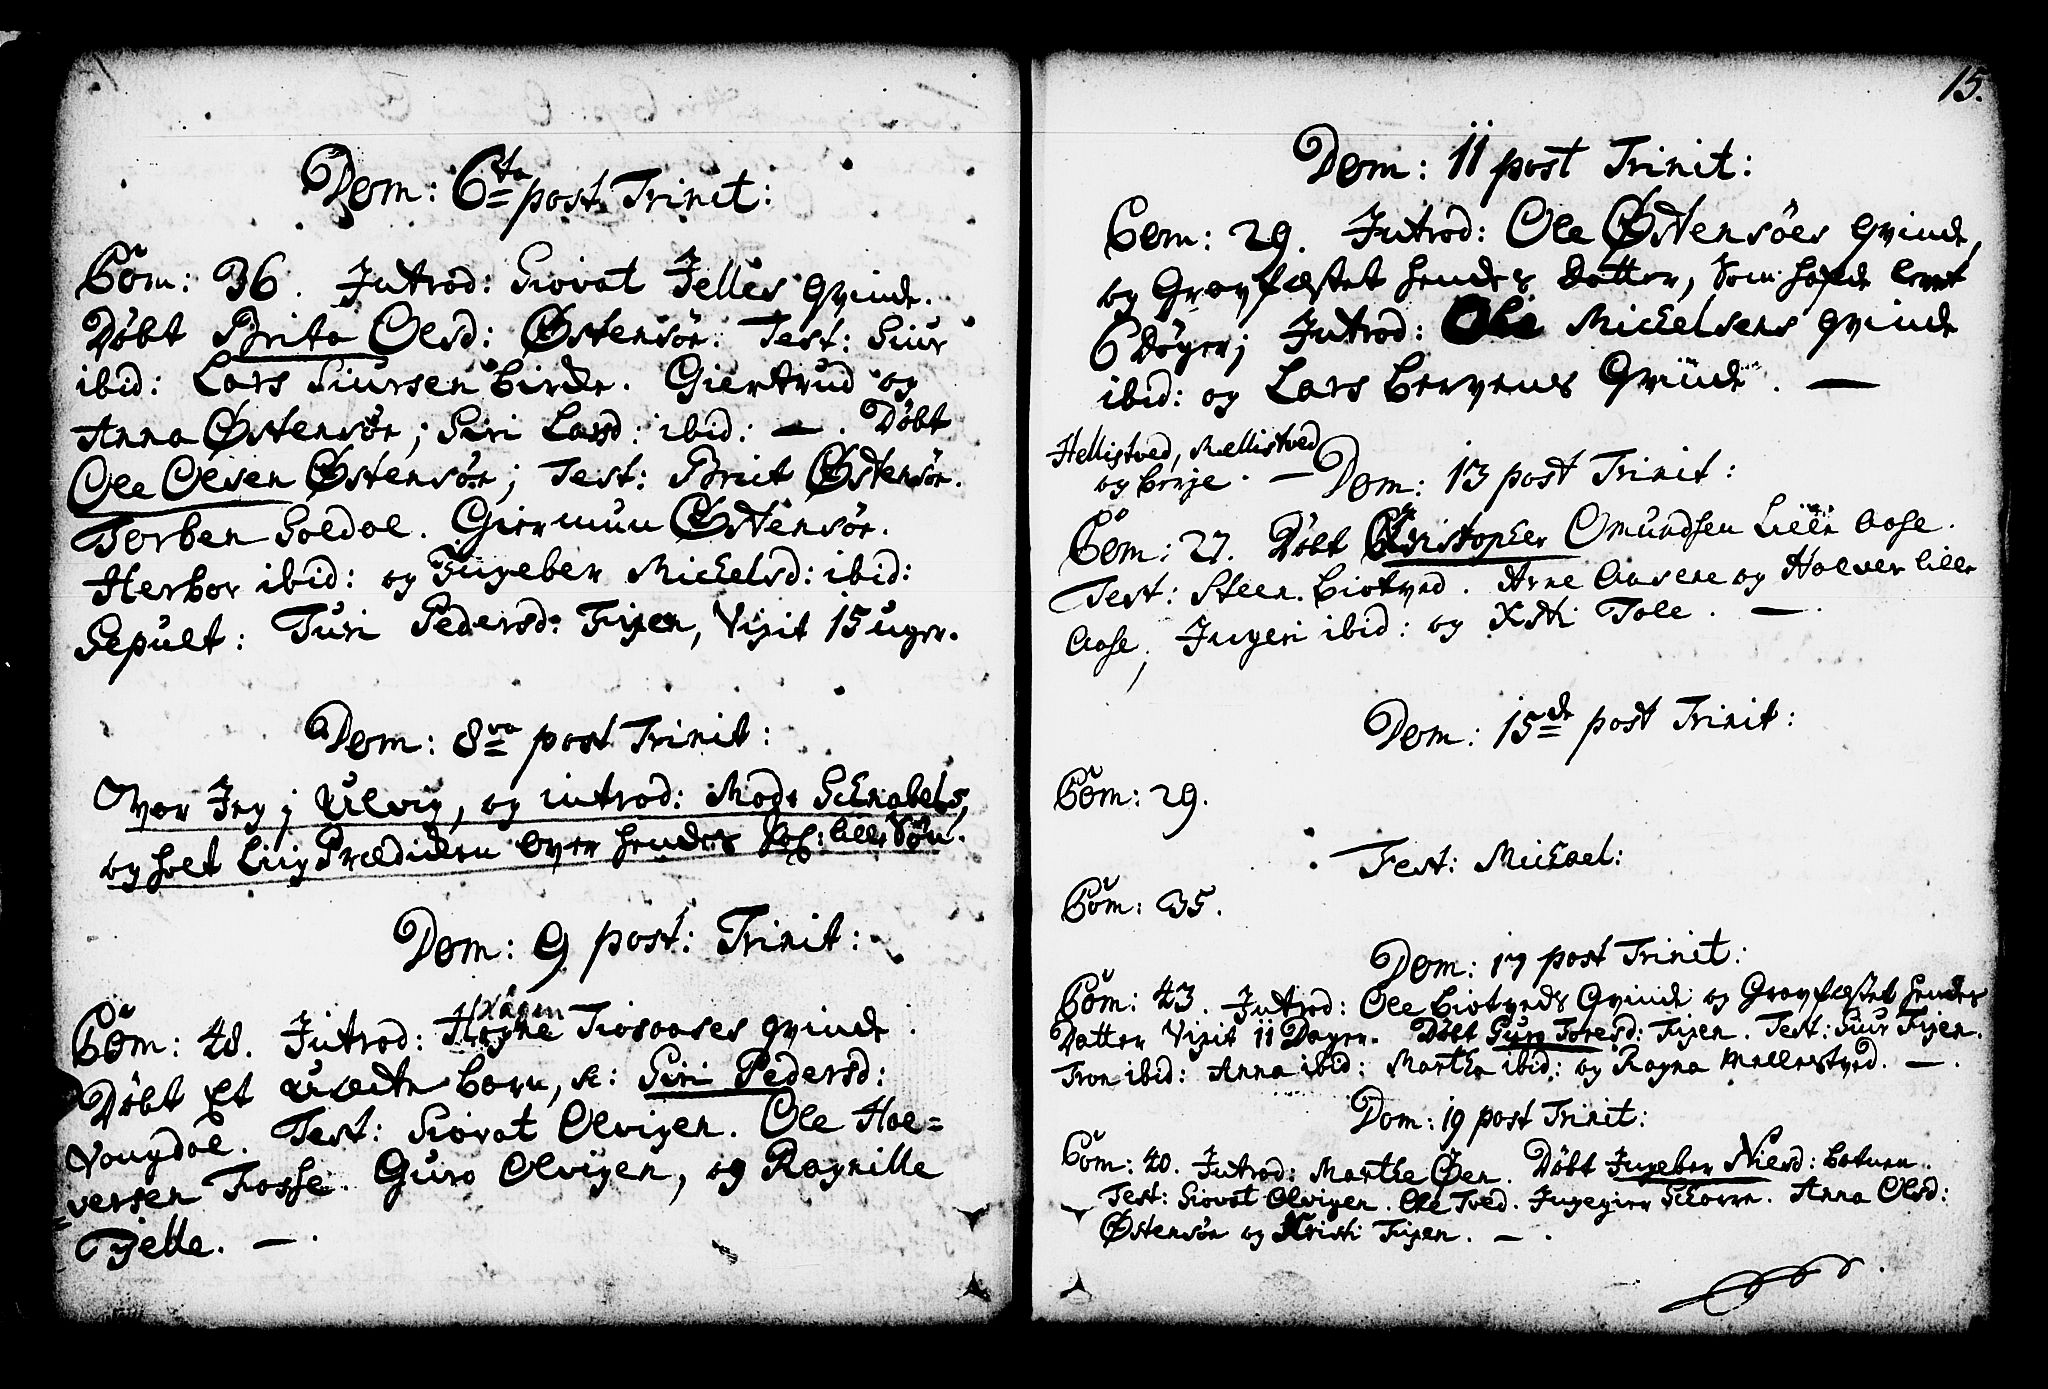 Dom: 6ta post Trinit:
Com: 36. Introd: Siovat Jelles Qvinde.
Døbt Brita Olsd: Østensøe. Test: Siur
ibid: Lars Siursen Birche. Giertrud og
Anna Østensøe; Siri Larsd: ibid: — . Døbt
Ole Olsen Østensøe; Test: Brit Østensøe.
Torben Soldal. Giermun Østensøe.
Herbor ibid: og Ingebor Mickelsd: ibid:
Sepult: Turi Pedersd: Fixen, Vixit 15 uger.
Dom: 8va post Trinit:
Var Jeg i Ulvig, og introd: Mad: Schnabels,
og holt Liig Prædicken over hendes Sal: lille Søn.
Dom: 9 post: Trinit:
Haagen
Com: 48. Introd: Tiosaases Qvinde.
Døbt et uægte barn, sc: Siri Pedersd:
Vangdal. Test: Siovat Olvigen. Ole Hal=
=versen Fosse. Guro Olvigen, og Ragnille
Fielle. — .
15.
Dom: 11 post Trinit:
Com: 29. Introd: Ole Østensøes Qvinde,
og Gravfæstet hendes datter, som hafde levet
6 døger; Introd: Ole Mickelsens Qvinde
ibid: og Lars Bervens Qvinde. —
Hellistved, Mellistved
og Berje. — Dom: 13 post Trinit:
Com: 27. Døbt Christopher Omundsen Lille Aase.
Test: Steen Biotved. Arne Aasene og Halver lille
Aase, Ingeri ibid: og Kisti Tole. — .
Dom: 15de post Trinit:
Com: 29.
Fest: Michael:
Com: 35.
Dom: 17 post Trinit:
Com: 43. Introd: Ole Biotveds Qvinde og Gravfæstet hendes
Datter Vixit 11 Dager. Døbt Guro Toresd: Fixen. Test: Siur Fixen.
Tron ibid: Anna ibid: Marthe ibid: og Ragna Mellestved. — .
Dom: 19 post Trinit:
Com: 40. Introd: Marthe Øen. Døbt Ingebor Nielsd: Botnen.
Test: Siovat Olvigen. Ole Tved. Ingegier Skaare. Anna Olsd:
Østensøe og Kristi Fixen. — .